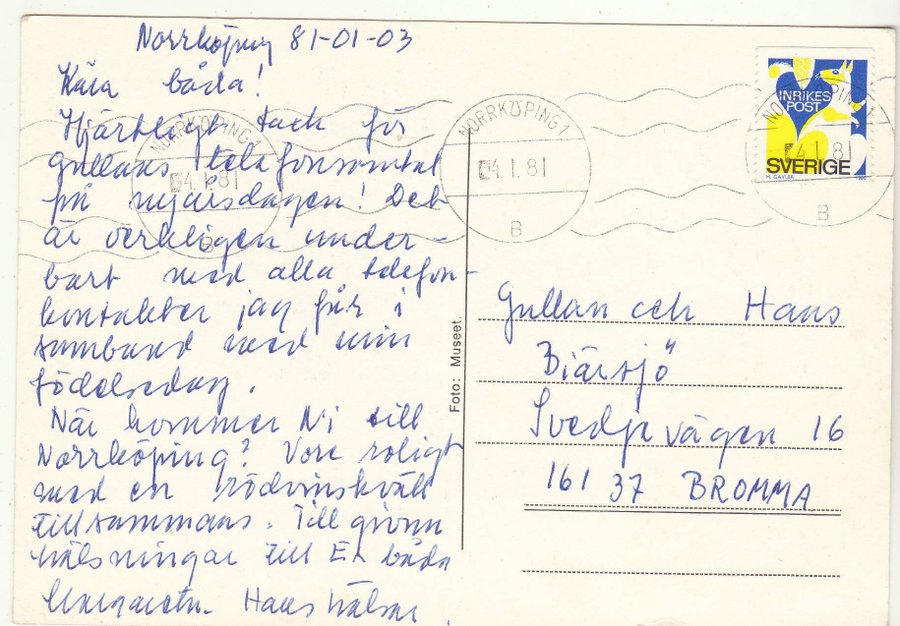 Norrköping 81-01-03
Kära båda!
Hjärtligt tack för
Gullans telefonsamtal
på nyårsdagen! Det
är verkligen under-
bart med alla telefon-
kontakter jag får i
samband med min
födelsedag.
När kommer Ni till
Norrköping? Vore roligt
med en rödvinskväll
tillsammans. Tillgivna
hälsningar till Er båda
Margareta. Hans hälsar.
Foto: Museet.
NORRKÖPING 1
4.1.81
B
NORRKÖPING 1
4.1.81
B
NORRKÖPING 1
4.1.81
B
INRIKES
POST
SVERIGE
H. GAVLER 1980
Gullan och Hans
Biärsjö
Svedjevägen 16
161 37 BROMMA